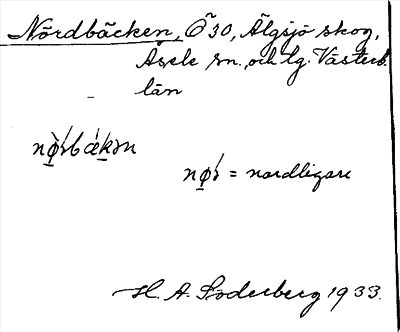 Nördbäcken, Ö 30, Älgsjö skog,
Åsele sn. och lg. Västerb.
län
nø̀rbǽkən
nør = nordligare
H. A. Söderberg 1933.